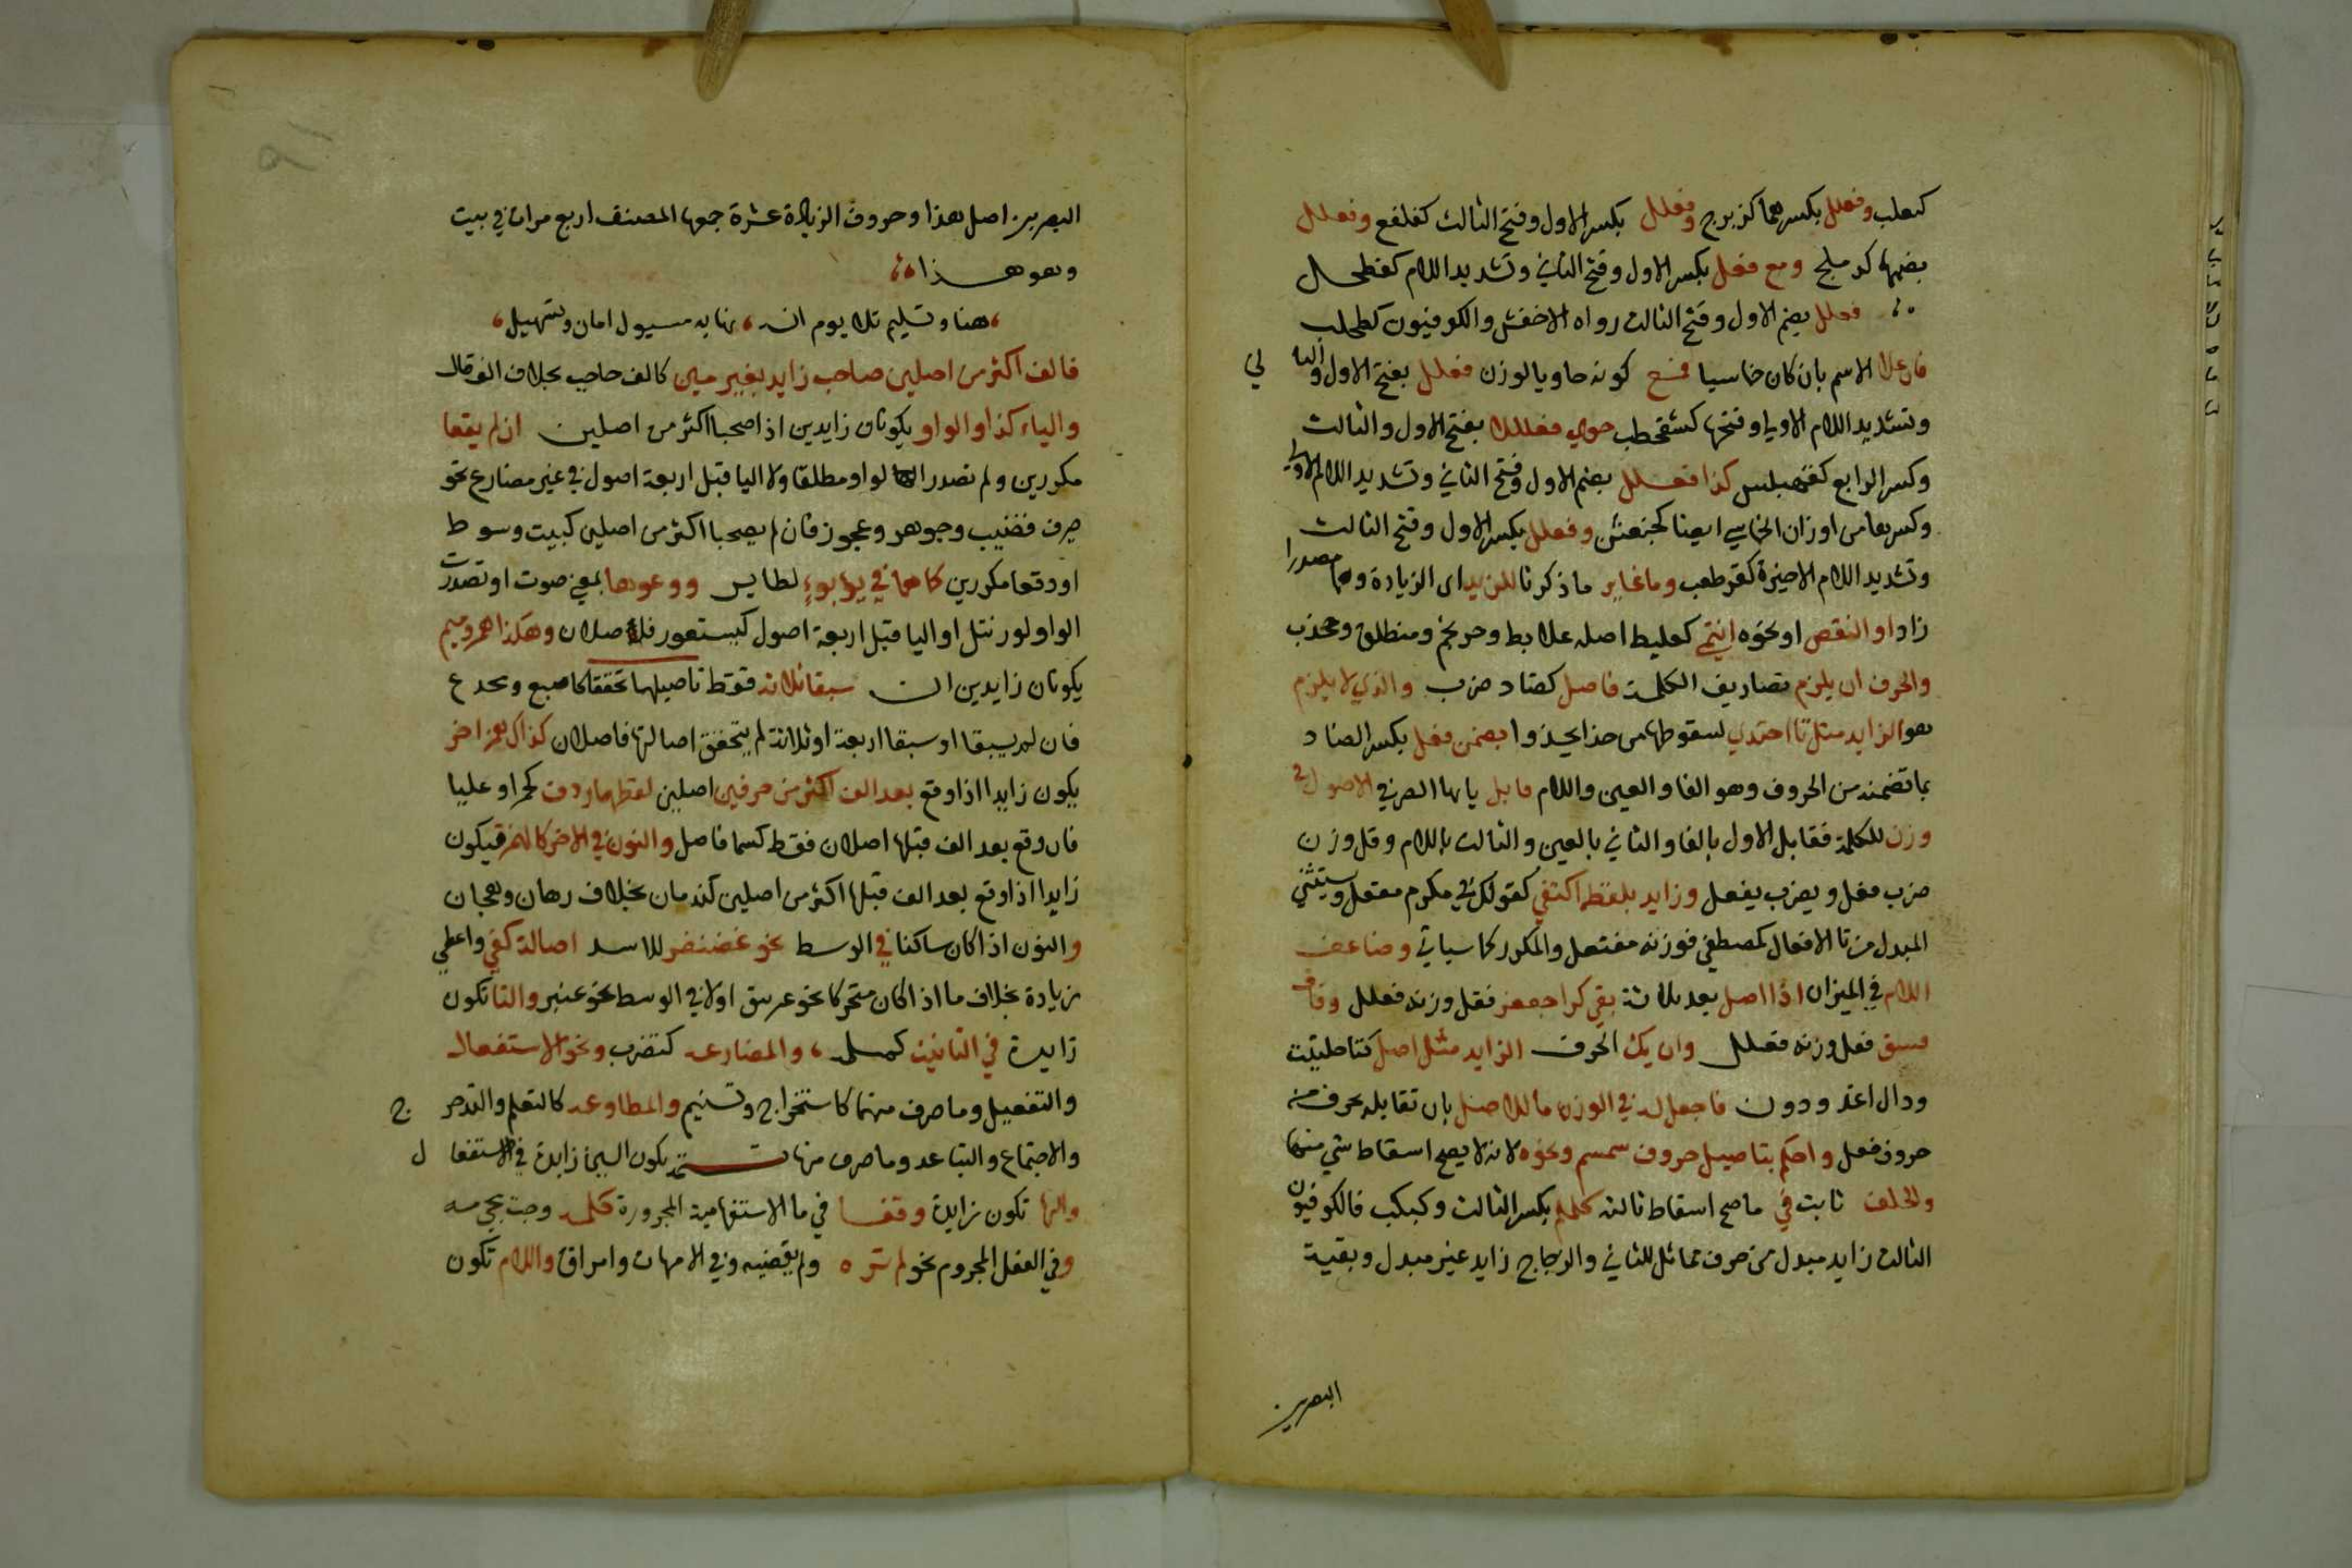 كثعلب وفعلل بكسرهما كزبرج وفعلل بكسر الاول وفتح الثالث كقلفع وفعلل
بضمهما كدملج ومع فعل بكسر الاول وفتح الثاني وتشديد اللام كفطحل
فعلل بضم الاول وفتح الثالث رواه الاخفش والكوفيون كطحلب
فان علا الاسم بان كان خماسيا فمع كونه حاويا لوزن فعلل بفتح الاول والثا ني
وتشديد اللام الاولي وفتحها كشقحطب حوي فعللل بفتح الاول والثالث
وكسر الرابع كقهبلس كذا فعلل بضم الاول وفتح الثاني وتشديد اللام الاولي
وكسرها من اوزان الخاسي ايضا كخبعثن وفعلل بكسر الاول وفتح الثالث
وتشديد اللام الاخيرة كقرطعب وما غاير ما ذكرنا للزيد اي الزيادة وهما مصدرا
زاد او النقص او نحوه انتمي كعلبط اصله علابط وحرنجم ومنطلق ومحذب
والحرف ان يلزم تصاريف الكلمة فاصل كضاد ضرب والذي لا يلزم
هو الزايد مثل تا احتذي لسقوطها من حذا يحذوا بضمن فعل بكسر الضاد
بما تضمنه من الحروف وهو الفا والعين واللام قابل يا ايها الصرفي الاصول في
وزن للكلمة فقابل الاول بالفا والثاني بالعين والثالث باللام وقل وزن
ضرب فعل ويضرب يفعل وزايد بلفظه اكتفي كقولك في مكرم مفعل ويستثني
المبدل من تا الافتعال كمصطفي فوزنه مفتعل والمكرر كما سياتي وضاعف
اللام في الميزان اذا اصل بعد ثلاثة بقي كرا جعفر فقل وزنه فعلل وقاف
فستق فقل وزنه فعلل وان يك الحرف الزايد مثل اصل كتا حلتيت
ودال اغدودن فاجعل له في الوزن ما للاصل بان تقابله بحرف من
حروف فعل واحكم بتاصيل حروف سمسم ونحوه لانه لا يصح اسقاط شي منها
والخلف ثابت في ما صح اسقاط ثالثه كلملم بكسر الثالث وكبكب فالكوفيون
الثالث زايد مبدل من حرف مماثل للثاني والزجاج زايد غير مبدل وبقية
البصريين
البصريين اصل هذا وحروف الزيادة عشرة جمعها المصنف اربع مرات في بيت
وهو هـذا
هنا وتسليم تلا يوم انسه نهاية مسيول امان وتسهيل
فالف اكثر من اصلين صاحب زايد بغير مين كالف حاجب بخلاف الف قال
والياء كذا والواو يكونان زايدين اذا صحبا اكثر من اصلين ان لم يقعا
مكررين ولم تصدر الواو مطلقا ولا اليا قبل اربعة اصول في غير مضارع نحو
صرف قضيب وجوهر وعجوز فان لم يصحبا اكثر من اصلين كبيت وسوط
او وقعا مكررين كما هما في يؤيؤ لطاير ووعوعا بمعني صوت او تصدرت
الواو لورنتل او اليا قبل اربعة اصول كيستعور فاصلان وهكذا همز وميم
يكونان زايدين ان سبقا ثلاثة فقط تاصيلها تحققا كاصبع ومخدع
فان لم يسبقا او سبقا اربعة او ثلاثة لم يتحقق اصالتها فاصلان كذاك همز اخر
يكون زايدا اذا وقع بعد الف اكثر من حرفين اصلين لفظها ردف كحمرا وعلبا
فان وقع بعد الف قبلها اصلان فقط كسما فاصل والنون في الاخر كالهمز فيكون
زايدا اذا وقع بعد الف قبلها اكثر من اصلين كندمان بخلاف رهان وهجان
والنون اذا كان ساكنا في الوسط نحو غضنفر للاسد اصالة كفي واعطي
زيادة بخلاف ما اذا كان متحركا نحو غرنيق او لا في الوسط نحو عنبر والتا تكون
زايدة في التانيث كمسلمة والمضارعه كتضرب ونحو الاستفعال
والتفعيل وما صرف منهما كاستخراج وتسنيم والمطاوعه كالتعلم والتدحر ج
والاجتماع والتباعد وما صرف منها تتمة يكون السين زايدة في الاستفعا ل
والها تكون زايدة وقفا في ما الاستفهامية المجرورة كلمه وجئت مجي مه
وفي الفعل المجزوم نحو لم تره ولم يقضه وفي الامهات واهراق واللام تكون